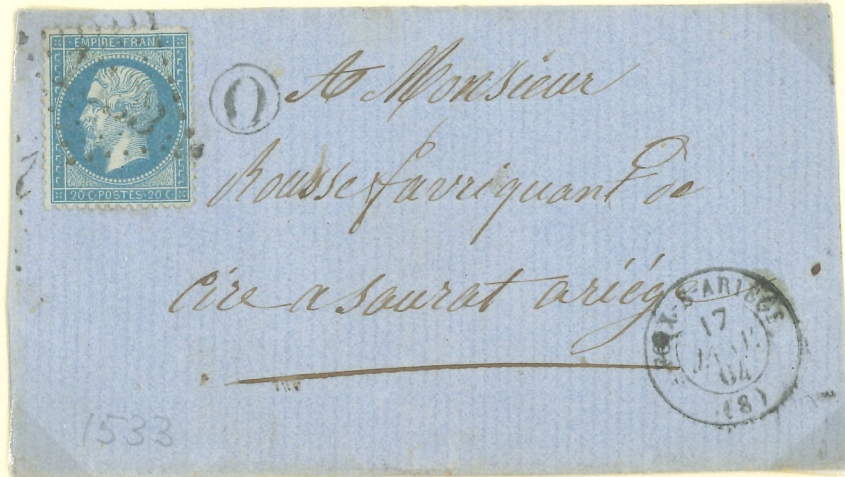 EMPIRE FRANC
20 C POSTES 20 C
O
A Monsieur
Rousse favriquant de
cire a saurat ariég
FOIX-S-ARIÈGE
17
JANV.
64
(8)
1533